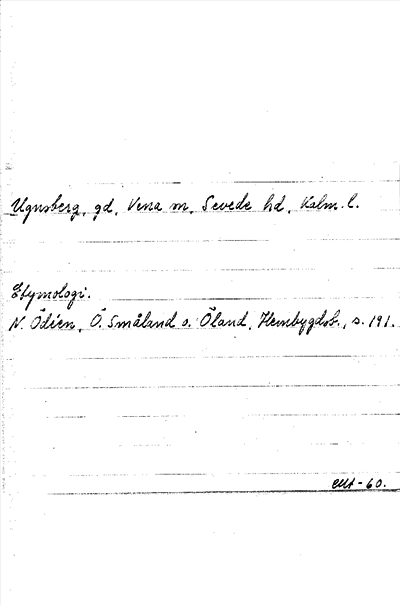 Ugnsberg, gd, Vena sn, Sevede hd, Kalm. l.
Etymologi.
N. Ödéen, Ö. Småland o. Öland, Hembygdsb., s. 191.
-60.